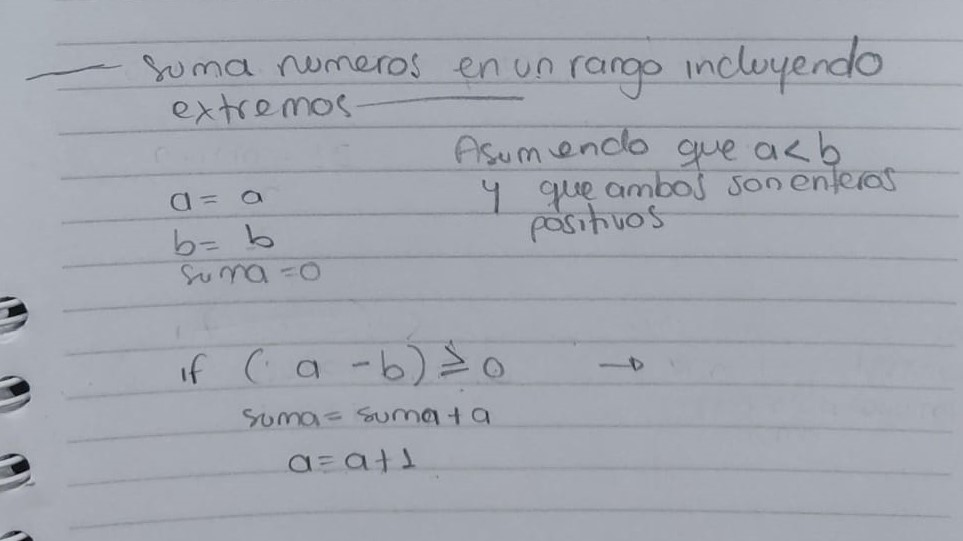 suma numeros en un rango incluyendo
extremos
Asumiendo que a<b
y que ambos son enteros
positivos
a = a
b = b
suma = 0
if ( a - b) ≥ 0 →
suma = suma + a
a = a + 1